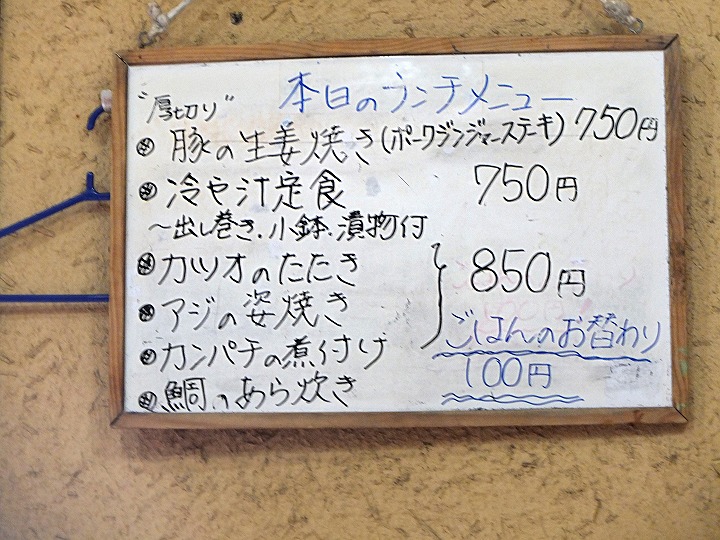 本日のランチメニュー
"厚切り"
豚の生姜焼き(ポークジンジャーステーキ) 750円
冷や汁定食 750円
〜出し巻き.小鉢.漬物付
カツオのたたき
アジの姿焼き
カンパチの煮付け
鯛のあら炊き
850円
ごはんのお替わり
100円